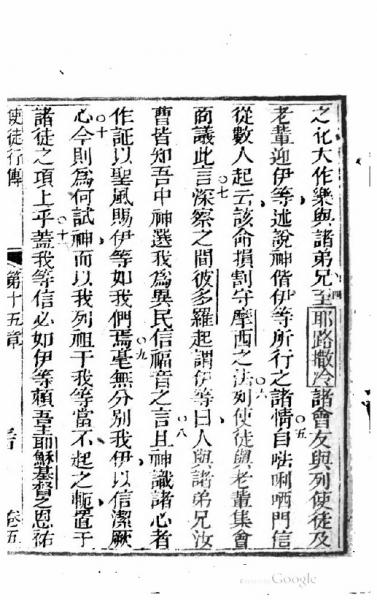 之化大作樂與諸弟兄至耶路撒冷諸會友與列使徒及
老輩迎伊等述說神偕伊等所行之諸情自𠵽唎哂門信
從數人起云該命損割守摩西之法列使徒與老輩集會
商議此言深察之間彼多羅起謂伊等曰人與諸弟兄汝
曹皆知吾中神選我為異民信福音之言且神識諸心者
作証以聖風賜伊等如我們焉毫無分別我伊以信潔厥
心今則為何試神而以我列祖于我等當不起之軛置于
諸徒之項上乎蓋我等信必如伊等賴吾主耶穌基督之恩祐
使徒行傳 第十五章 卷五
Google